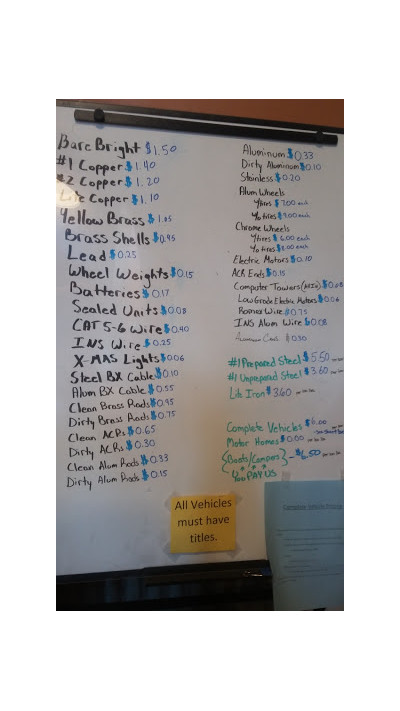 Bare Bright $1.50
#1 Copper $1.40
#2 Copper $1.20
Lite Copper $1.10
Yellow Brass $1.05
Brass Shells $0.95
Lead $0.25
Wheel Weights $0.15
Batteries $0.17
Sealed Units $0.08
CAT 5-6 Wire $0.40
INS Wire $0.25
X-MAS Lights $0.06
Steel BX Cable $0.10
Alum BX Cable $0.55
Clean Brass Rads $0.95
Dirty Brass Rads $0.75
Clean ACRs $0.65
Dirty ACRs $0.30
Clean Alum Rads $0.33
Dirty Alum Rads $0.15
Aluminum $0.33
Dirty Aluminum $0.10
Stainless $0.20
Alum Wheels
w/tires $7.00 each
w/o tires $9.00 each
Chrome Wheels
w/tires $6.00 each
w/o tires $8.00 each
Electric Motors $0.10
ACR Ends $0.15
Computer Towers
Low Grade Electric Motors $0.06
Romex Wire $0.75
INS Alum Wire $0.08
Cans $0.30
#1 Prepared Steel $5.50
#1 Unprepared Steel $3.60
Lite Iron $3.60
Complete Vehicles $6.00
Motor Homes $0.00
Boats/Campers - $6.50
You PAY US
All Vehicles
must have
titles.
Complete Vehicle